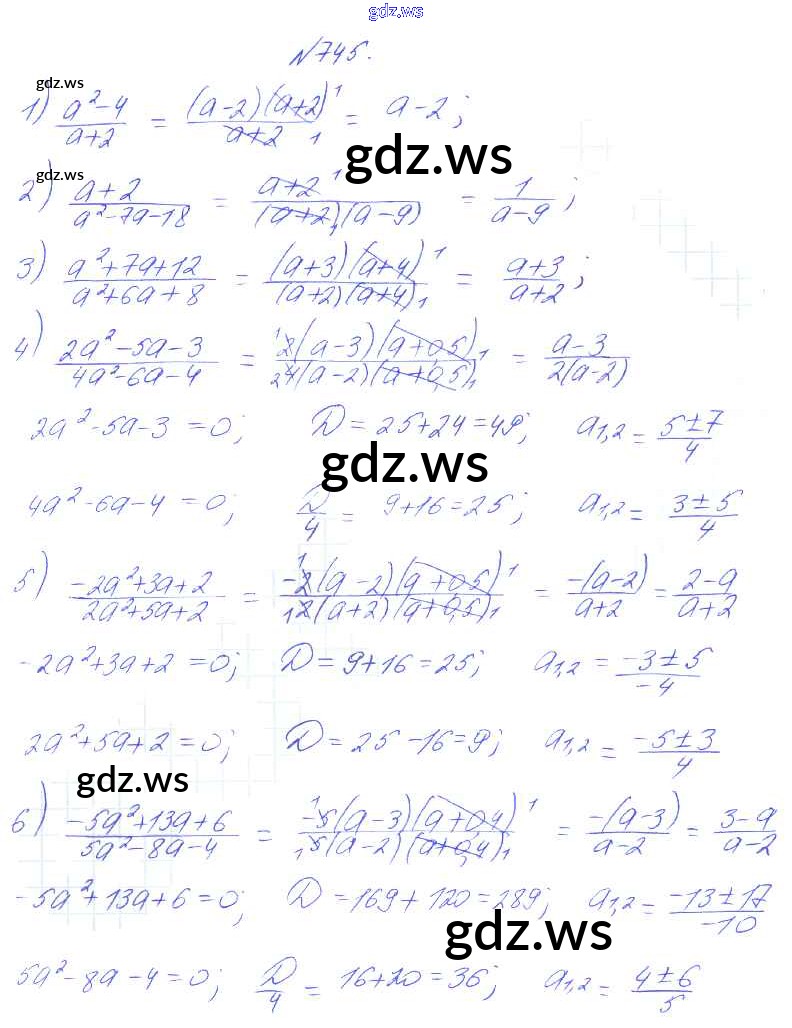 gdz.ws
N745.
gdz.ws
1) (a²-4)/(a+2) = ((a-2)(a+2) 1)/(a+2 1) = a-2;
gdz.ws
gdz.ws
2) (a+2)/(a²-7a-18) = (a+2 1)/((a+2) 1 (a-9)) = 1/(a-9);
3) (a²+7a+12)/(a²+6a+8) = ((a+3)(a+4) 1)/((a+2)(a+4) 1) = (a+3)/(a+2);
4) (2a²-5a-3)/(4a²-6a-4) = (1 2(a-3)(a+0,5) 1)/(2 4(a-2)(a+0,5) 1) = (a-3)/(2(a-2))
2a²-5a-3=0; D=25+24=49; a1,2 = (5±7)/4
gdz.ws
4a²-6a-4=0; D/4 = 9+16=25; a1,2 = (3±5)/4
5) (-2a²+3a+2)/(2a²+5a+2) = (1 -2(a-2)(a+0,5) 1)/(1 2(a+2)(a+0,5) 1) = (-(a-2))/(a+2) = (2-a)/(a+2)
-2a²+3a+2=0; D=9+16=25; a1,2 = (-3±5)/(-4)
2a²+5a+2=0; D=25-16=9; a1,2 = (-5±3)/4
gdz.ws
6) (-5a²+13a+6)/(5a²-8a-4) = (1 -5(a-3)(a+0,4) 1)/(1 5(a-2)(a+0,4) 1) = (-(a-3))/(a-2) = (3-a)/(a-2)
-5a²+13a+6=0; D=169+120=289; a1,2 = (-13±17)/(-10)
gdz.ws
5a²-8a-4=0; D/4 = 16+20=36; a1,2 = (4±6)/5